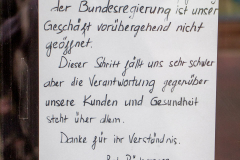 der Bundesregierung ist unser
Geschäft vorübergehend nicht
geöffnet.
Dieser Schritt fällt uns sehr schwer
aber die Verantwortung gegenüber
unsere Kunden und Gesundheit
steht über allem.
Danke für ihr Verständnis.